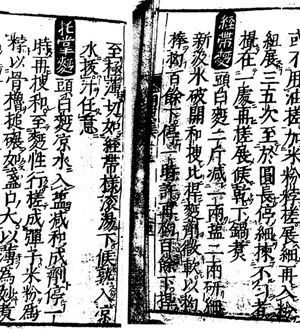 或不用油搓加米粉䊗搓展細再入粉
紐展三五次至於圓長停細揀不勻者
撮在一處再搓展候乾下鍋煮
經帶麵 頭白麵二斤減一兩鹽二兩研細
新汲水破開和搜比捍麵劑微軟以拗
棒拗百餘下停一時許再拗百餘下捍
至極薄切如經帶樣滾湯下候熟入涼
水拔汁任意
托掌麵 頭白麵涼水入鹽减和成劑停一
時再搜和至麵性行搓成彈子米粉為
䊗以骨魯槌碾如盞口大以薄為妙煮